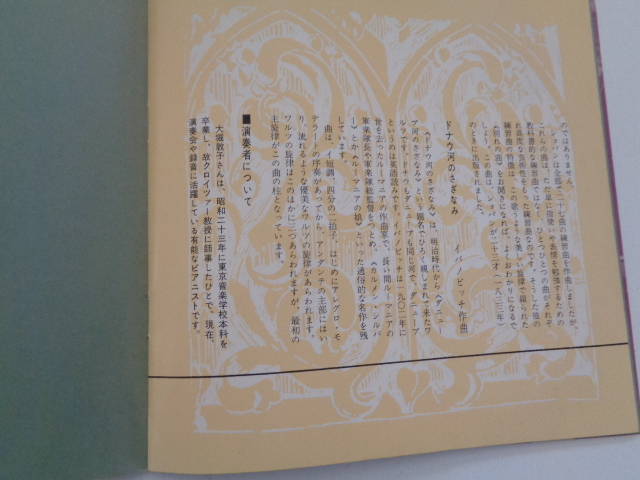 のではありません。
ショパンは全部で二十七曲の練習曲を作曲しましたが、
これらの曲は、ただ単に指使いや奏博を勉強するための
教科書的な練習曲ではなく、ひとつひとつの曲がそれぞ
れ高度な芸術性をもった練習曲なのです。そして、この
練習曲の特徴は、この歌うような美しい旋律で綴られた
《別れの曲》をお聞きになれば、よくおわかりになるで
しょう。この曲は、ショパンが二十三才（一八三三年）
のときに出版されました。
ドナウ河のさざなみ
イバノビッチ作曲
《ドナウ河のさざなみ》は、明治時代から《ダニュー
ブ河のさざなみ》という題名でひろく親しまれて来たワ
ルツです。もっともダニューブも同じ河で、ダニューブ
というのは英語読みです。イバノビッチは一九〇二年に
世を去ったルーマニアの作曲家で、長い間ルーマニアの
軍楽隊長や軍楽隊総監督をつとめ、《カルメン・シルバ
ー》とか《ルーマニアの娘》といった通俗的な名作を残
しています。
曲は、イ短調、四分の二拍子、はじめにアレグロ・モ
デラートの序奏があってから、アンダンテの主部にはい
り、流れるような優美なワルツの旋律があらわれます。
ワルツの旋律はこのほかに三つあらわれますが、最初の
主旋律がこの曲の柱となっています。
■演奏者について
大堀敦子さんは、昭和二十三年に東京音楽学校本科を
卒業し、故クロイツァー教授に師事したひとで、現在、
演奏会や録音に活躍している有能なピアニストです。